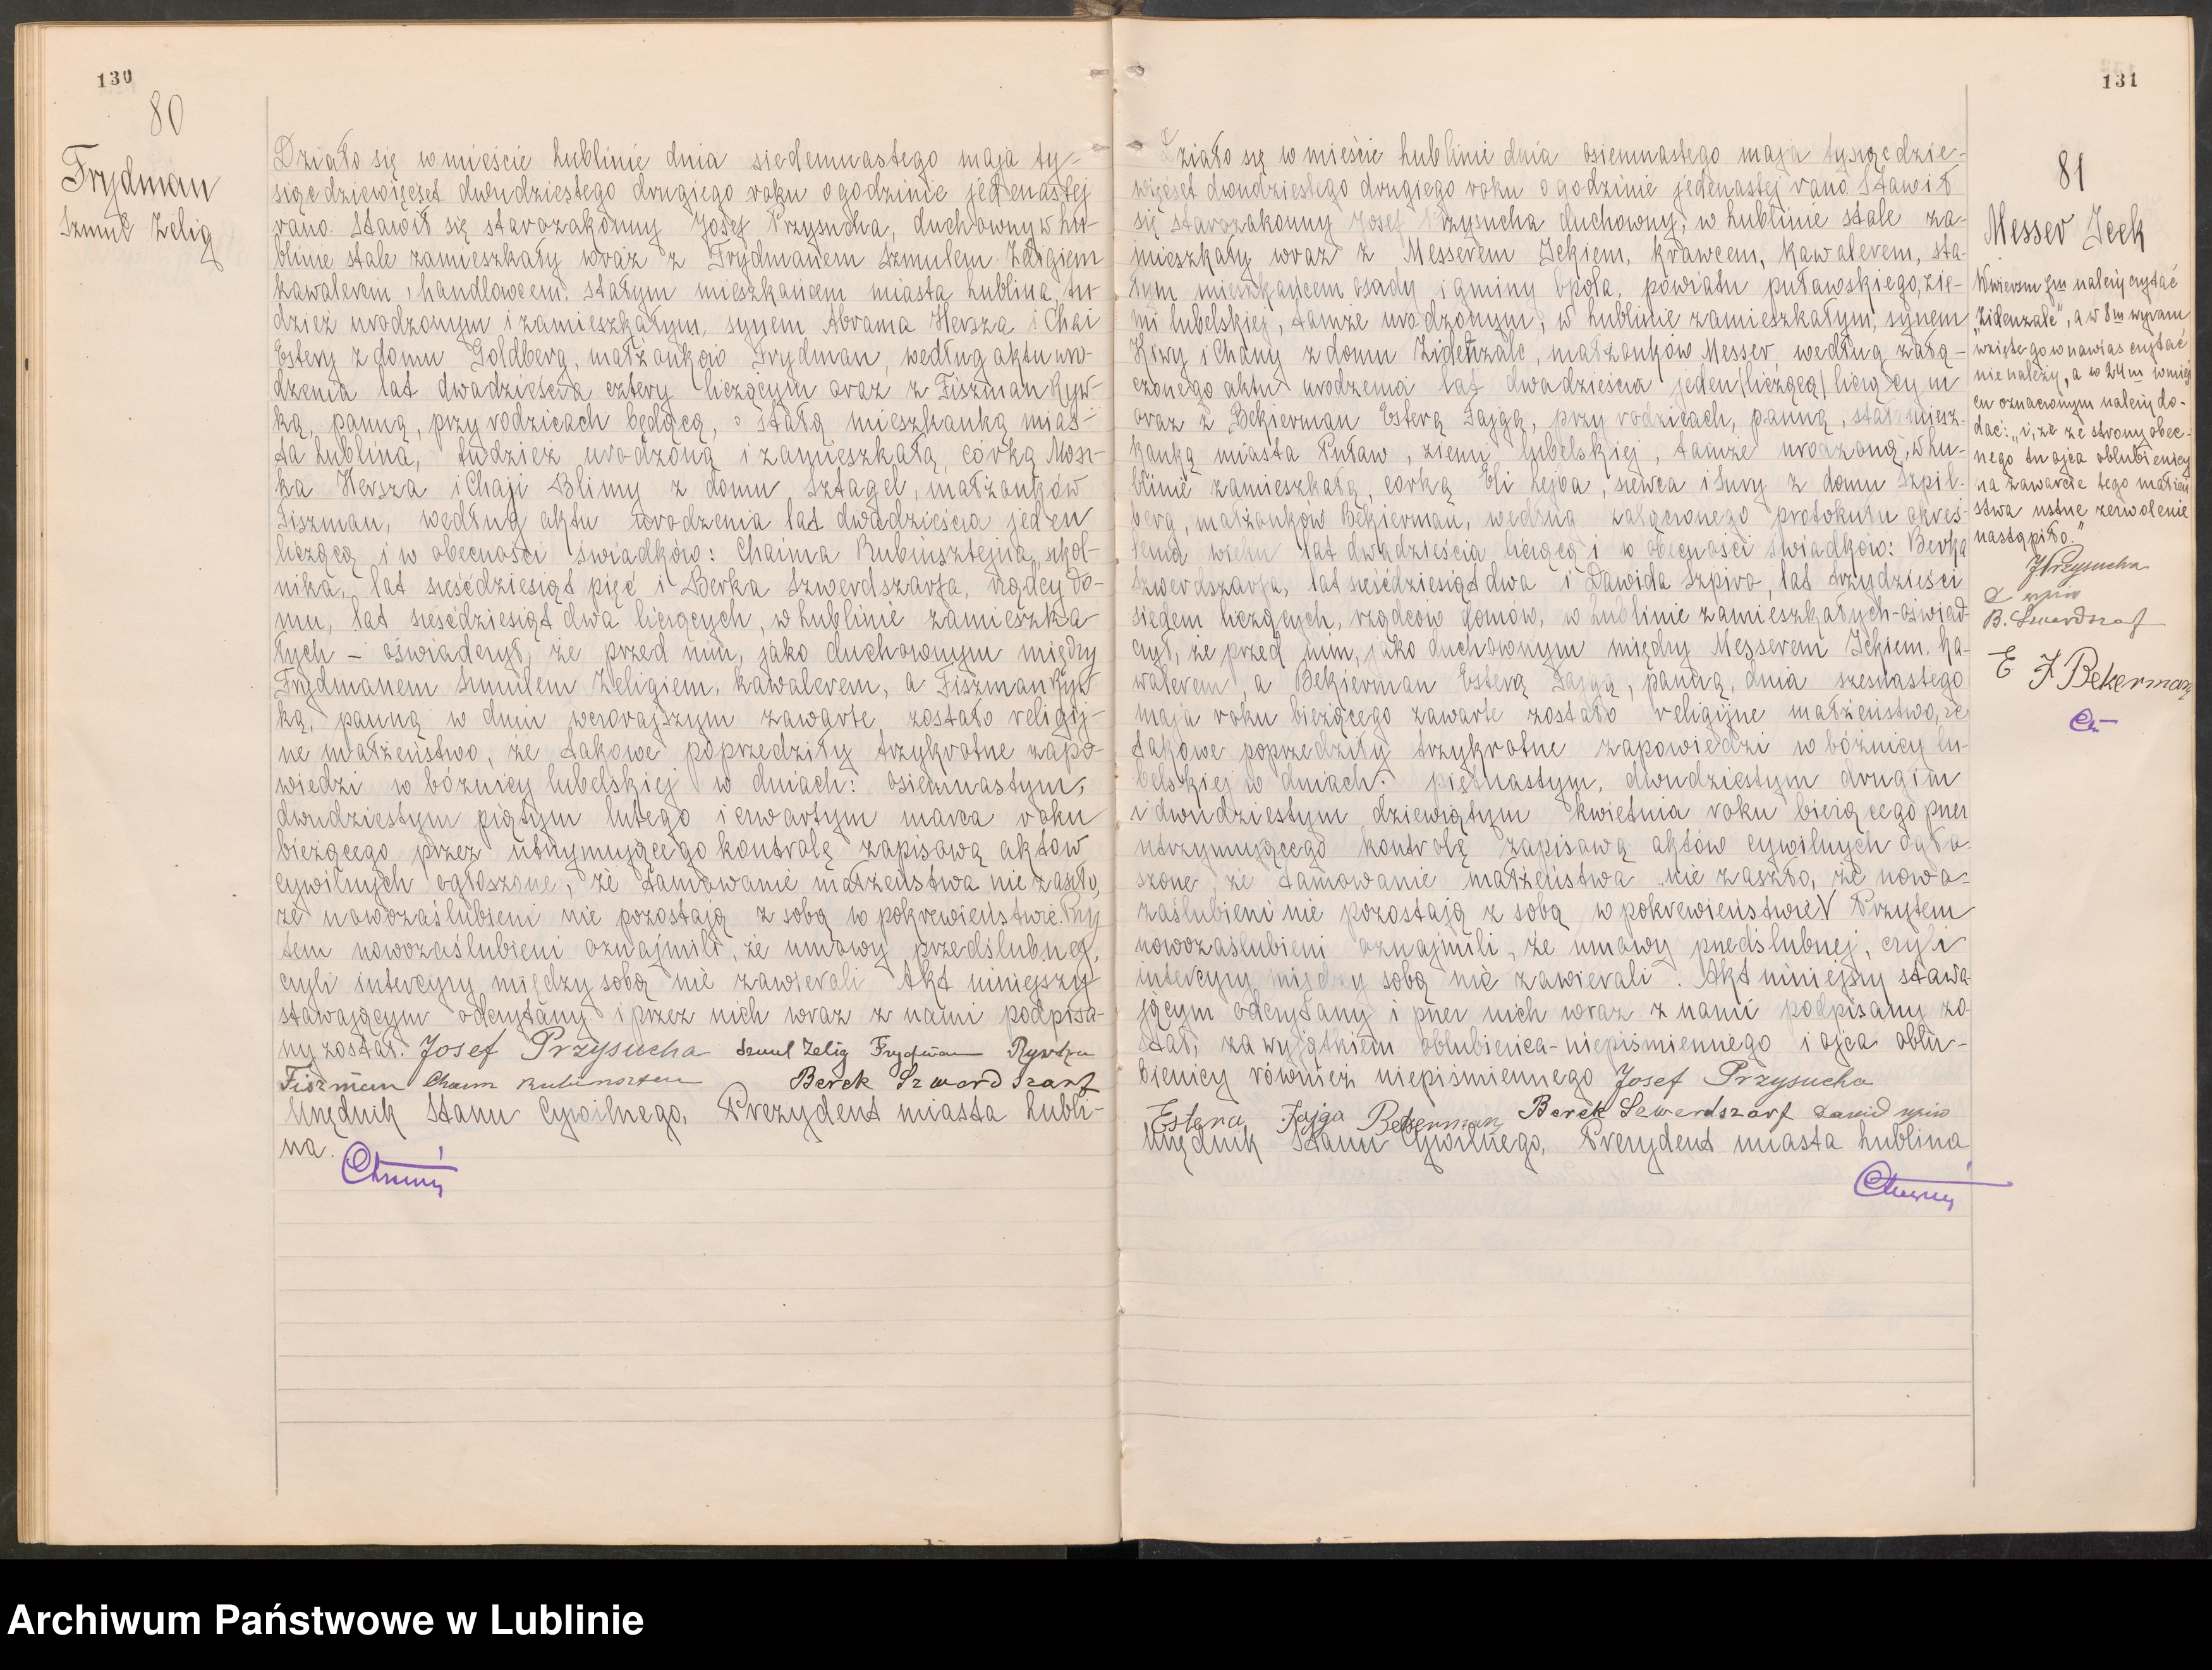 130
80
Frydman
Szmul Zelig
Działo się w mieście Lublinie dnia siedemnastego maja ty-
siąc dziewięćset dwudziestego drugiego roku o godzinie jedenastej
rano. Stawił się starozakonny Josef Przysucha, duchowny w Lu-
blinie stale zamieszkały wraz z Frydmanem Szmulem Zeligiem
kawalerem, handlowcem, stałym mieszkańcem miasta Lublina, tu-
dzież urodzonym i zamieszkałym, synem Abrama Hersza i Chai
Estery z domu Goldberg, małżonków Frydman, według aktu uro-
dzenia lat dwadzieścia cztery liczącym oraz z Fiszman Ryw-
ką, panną, przy rodzicach będącą, stałą mieszkanką mias-
ta Lublina, tudzież urodzoną i zamieszkałą, córką Mosz-
ka Hersza i Chaji Blimy z domu Sztagel, małżonków
Fiszman, według aktu urodzenia lat dwadzieścia jeden
liczącą i w obecności świadków: Chaima Rubinsztejna, szkol-
nika, lat sześćdziesiąt pięć i Berka Szwerdszarfa, rządcy do-
mu, lat sześćdziesiąt dwa liczących, w Lublinie zamieszka-
łych – oświadczył, że przed nim, jako duchownym między
Frydmanem Szmulem Zeligiem, kawalerem, a Fiszman Ryw
ką, panną w dniu wczorajszym zawarte zostało religij-
ne małżeństwo, że takowe poprzedziły trzykrotne zapo-
wiedzi w bóżnicy lubelskiej w dniach: osiemnastym,
dwudziestym piątym lutego i czwartym marca roku
bieżącego przez utrzymującego kontrolę zapisową aktów
cywilnych ogłoszone, że tamowanie małżeństwa nie zaszło,
że nowozaślubieni nie pozostają z sobą w pokrewieństwie. Przy
tem nowozaślubieni oznajmili, że umowy przedślubnej,
czyli intercyzy między sobą nie zawierali Akt niniejszy
stawającym odczytany i przez nich wraz z nami podpisa-
ny został. Josef Przysucha Szmul Zelig Frydman Rywka
Fiszman Chaim Rubinsztein Berek Szwerdszarf
Urzędnik Stanu Cywilnego, Prezydent miasta Lubli-
na.
131
81
Messer Icek
Działo się w mieście Lublinie dnia osiemnastego maja tysiąc dzie-
więćset dwudziestego drugiego roku o godzinie jedenastej rano Stawił
się starozakonny Josef Przysucha duchowny, w Lublinie stale za-
mieszkały wraz z Messerem Ickiem, krawcem, kawalerem, sta-
łym mieszkańcem osady i gminy Opola, powiatu puławskiego, zie-
mi lubelskiej, tamże urodzonym, w Lublinie zamieszkałym, synem
Kiwy i Chany z domu Zidenzalc, małżonków Messer według załą-
czonego aktu urodzenia lat dwadzieścia jeden (liczącą) liczącym
oraz z Bekierman Esterą Fajgą, przy rodzicach, panną, stałą miesz-
kanką miasta Puław, ziemi lubelskiej, tamże urodzoną, w Lu-
blinie zamieszkałą, córką Eli Lejba, szewca i Sury z domu Szpil-
berg, małżonków Bekierman, według załączonego protokułu okreś-
lenia wieku lat dwadzieścia liczącą i w obecności świadków: Berka
Szwerdszarfa, lat sześćdziesiąt dwa i Dawida Szpiro, lat trzydzieści
siedem liczących, rządców domów, w Lublinie zamieszkałych-oświad-
czył, że przed nim, jako duchownym między Messerem Ickiem, ka-
walerem, a Bekierman Esterą Fajgą, panną, dnia szesnastego
maja roku bieżącego zawarte zostało religijne małżeństwo, że
takowe poprzedziły trzykrotne zapowiedzi w bóżnicy lu-
belskiej w dniach: piętnastym, dwudziestym drugim
i dwudziestym dziewiątym kwietnia roku bieżącego przez
utrzymującego kontrolę zapisową aktów cywilnych ogło-
szone, że tamowanie małżeństwa nie zaszło, że nowo-
zaślubieni nie pozostają z sobą w pokrewieństwie V Przytem
nowozaślubieni oznajmili, że umowy przedślubnej, czyli
intercyzy między sobą nie zawierali. Akt niniejszy stawa-
jącym odczytany i przez nich wraz z nami podpisany zo-
stał, za wyjątkiem oblubieńca-niepiśmiennego i ojca oblu-
bienicy również niepiśmiennego Josef Przysucha
Estera Fajga Bekerman Berek Szwerdszarf Dawid Szpiro
Urzędnik Stanu Cywilnego, Prezydent miasta Lublina
W wierszu 7m należy czytać
"Zidenzalc", a w 8m wyraz
wzięte go w nawias czytać
nie należy, a w 24m w miej
scu oznaczonym należy do-
dać: "i, że ze strony obec-
nego tu ojca oblubienicy
na zawarcie tego małżeń
stwa ustne zezwolenie
nastąpiło."
J Przysucha
D Szpiro
B. Szwerdszarf
E F Bekerman
Archiwum Państwowe w Lublinie